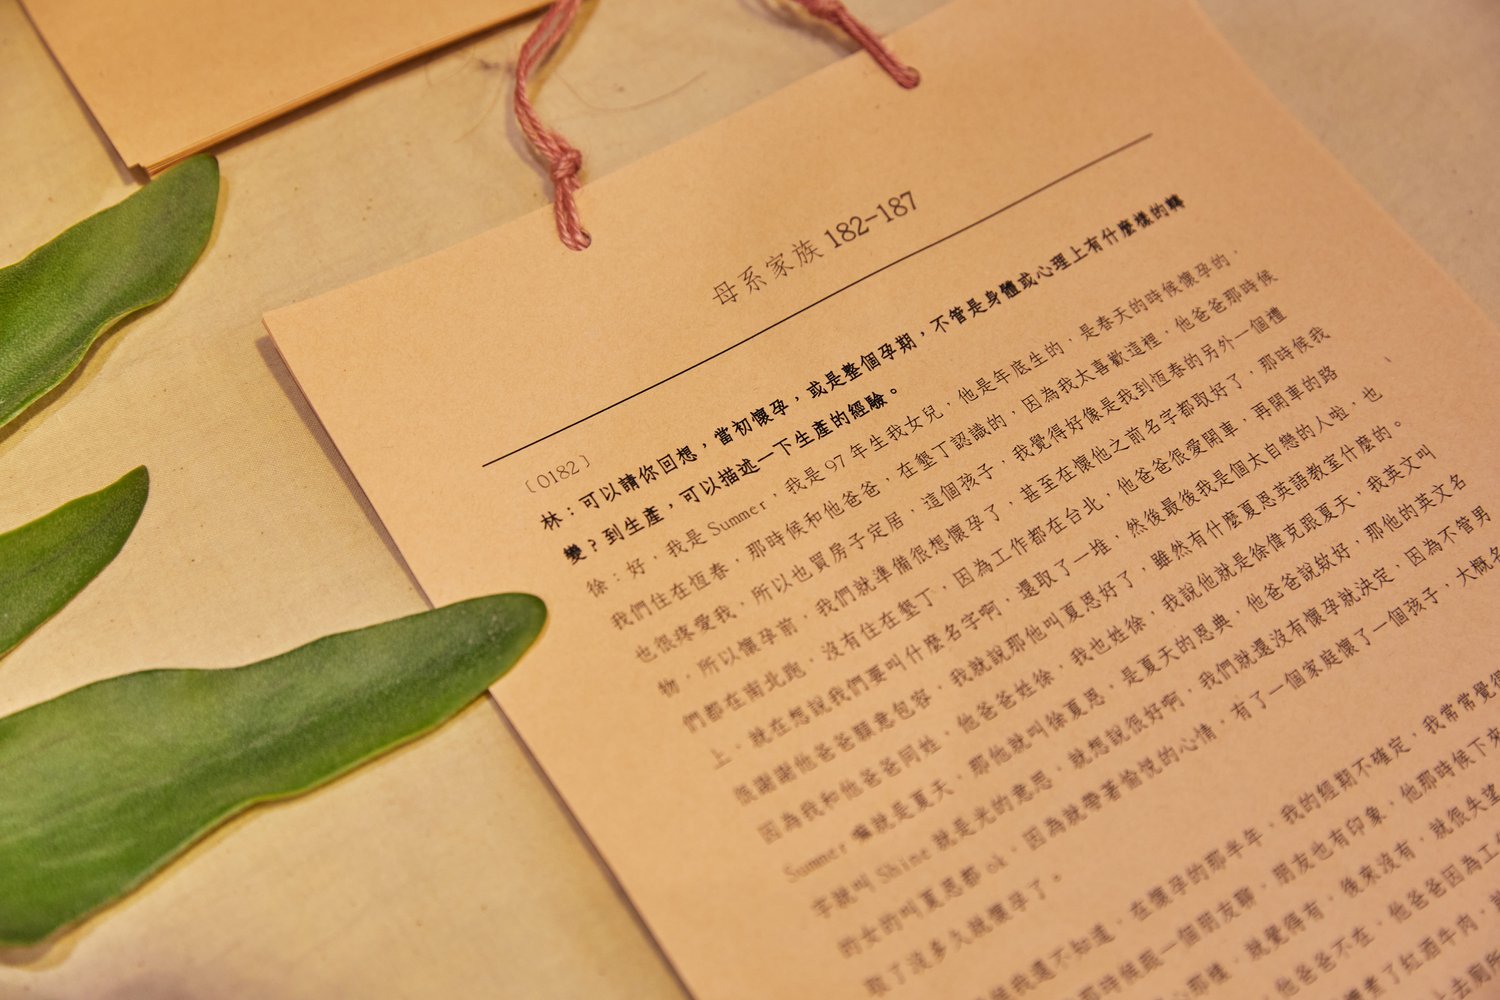 母系家族 182-187
〔0182〕
林：可以請你回想，當初懷孕，或是整個孕期，不管是身體或心理上有什麼樣的轉
變？到生產，可以描述一下生產的經驗。
徐：好，我是 Summer，我是 97 年生我女兒，他是年底生的，是春天的時候懷孕的，
我們住在恆春，那時候和他爸爸，在墾丁認識的，因為我太喜歡這裡，他爸爸那時候
也很疼愛我，所以也買房子定居，這個孩子，我覺得好像是我到恆春的另外一個禮
物，所以懷孕前，我們就準備很想懷孕了，甚至在懷他之前名字都取好了，那時候我
們都在南北跑，沒有住在墾丁，因為工作都在台北，他爸爸很愛開車，再開車的路
上，就在想說我們要叫什麼名字啊，還取了一堆，然後最後我是個太自戀的人啦，也
很謝謝他爸爸願意包容，我就說那他叫夏恩好了，雖然有什麼夏恩英語教室什麼的。
因為我和他爸爸同姓，他爸爸姓徐，我也姓徐，我說他就是徐偉克跟夏天，我英文叫
Summer 嘛就是夏天，那他就叫徐夏恩，是夏天的恩典，他爸爸說欸好，那他的英文名
字就叫 Shine 就是光的意思，就想說很好啊，我們就還沒有懷孕就決定，因為不管男
的女的叫夏恩都 ok，因為就帶著愉悅的心情，有了一個家庭懷了一個孩子，大概名
取了沒多久就懷孕了。
我還不知道，在懷孕的那半年，我的經期不確定，我常常覺得
那時候跟一個朋友聊，朋友也有印象，他那時候下來
心那樣，就覺得有，後來沒有，就很失望
他爸爸不在，他爸爸因為工作
煮了紅酒牛肉，就
上去廁所